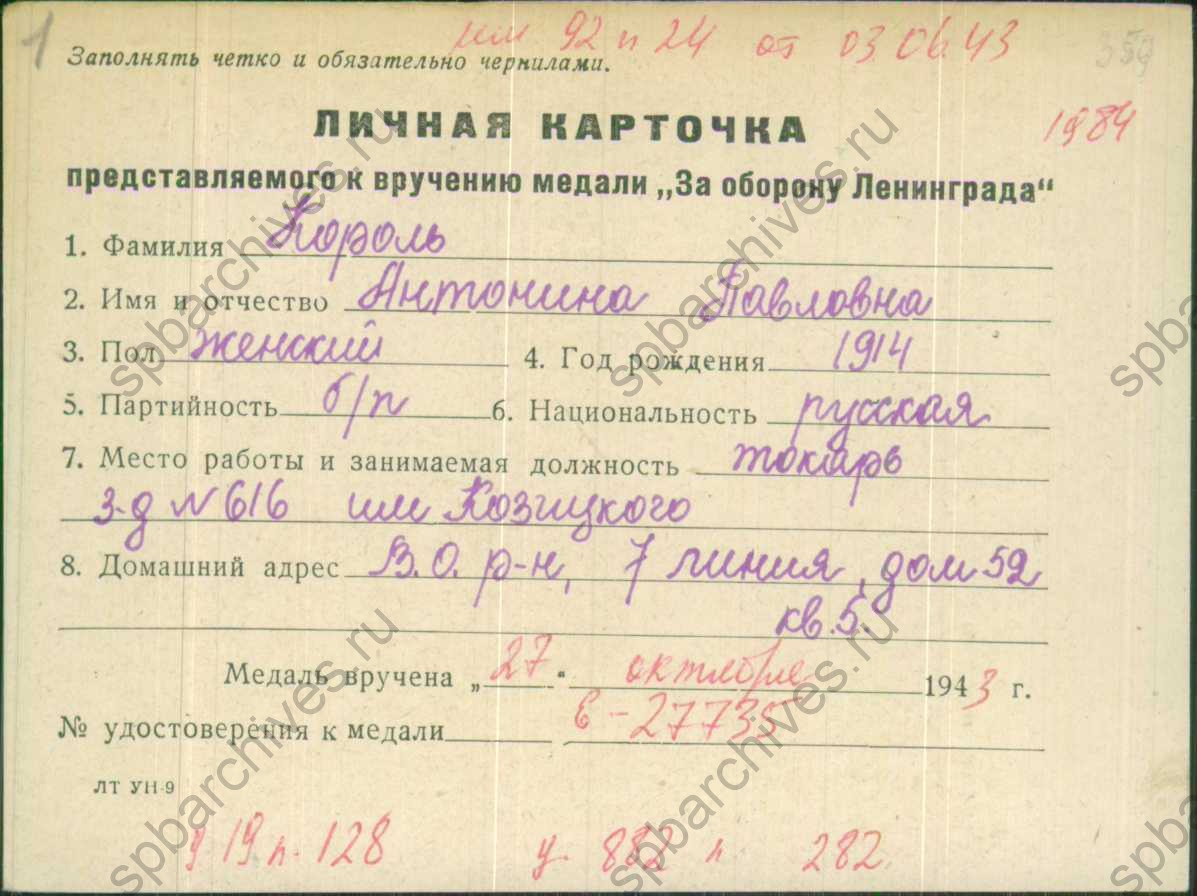 1
рем 92 п 24 от 03.06.43
359
Заполнять четко и обязательно чернилами.
1984
ЛИЧНАЯ КАРТОЧКА
представляемого к вручению медали „За оборону Ленинграда“
1. Фамилия Король
2. Имя и отчество Антонина Павловна
3. Пол Женский 4. Год рождения 1914
5. Партийность б/п 6. Национальность русская
7. Место работы и занимаемая должность токарь
з-д N 616 им Козицкого
8. Домашний адрес В.О. р-н, 7 линия, дом 52
кв. 5.
Медаль вручена „27“ октября 1943 г.
№ удостоверения к медали Е-27735
ЛТ УН-9
19 п. 128 у. 882 п 282
spbarchives.ru
spbarchives.ru
spbarchives.ru
spbarchives.ru